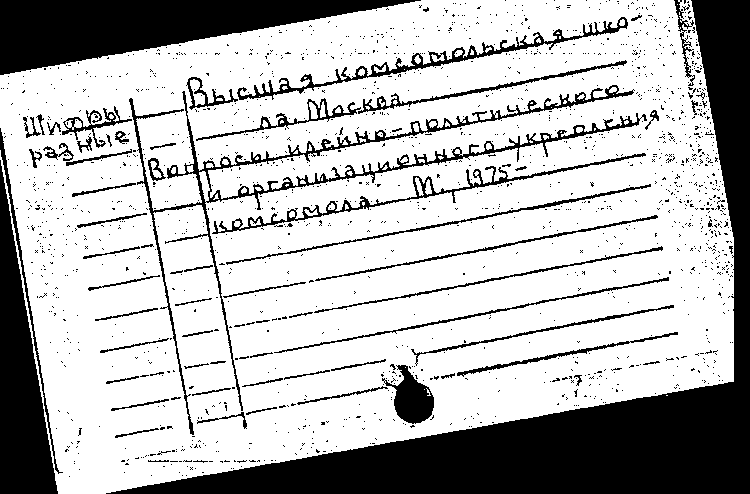 Шифры
разные
Высшая комсомольская шко-
ла. Москва.
Вопросы идейно-политического
и организационного укрепления
комсомола. М., 1975-